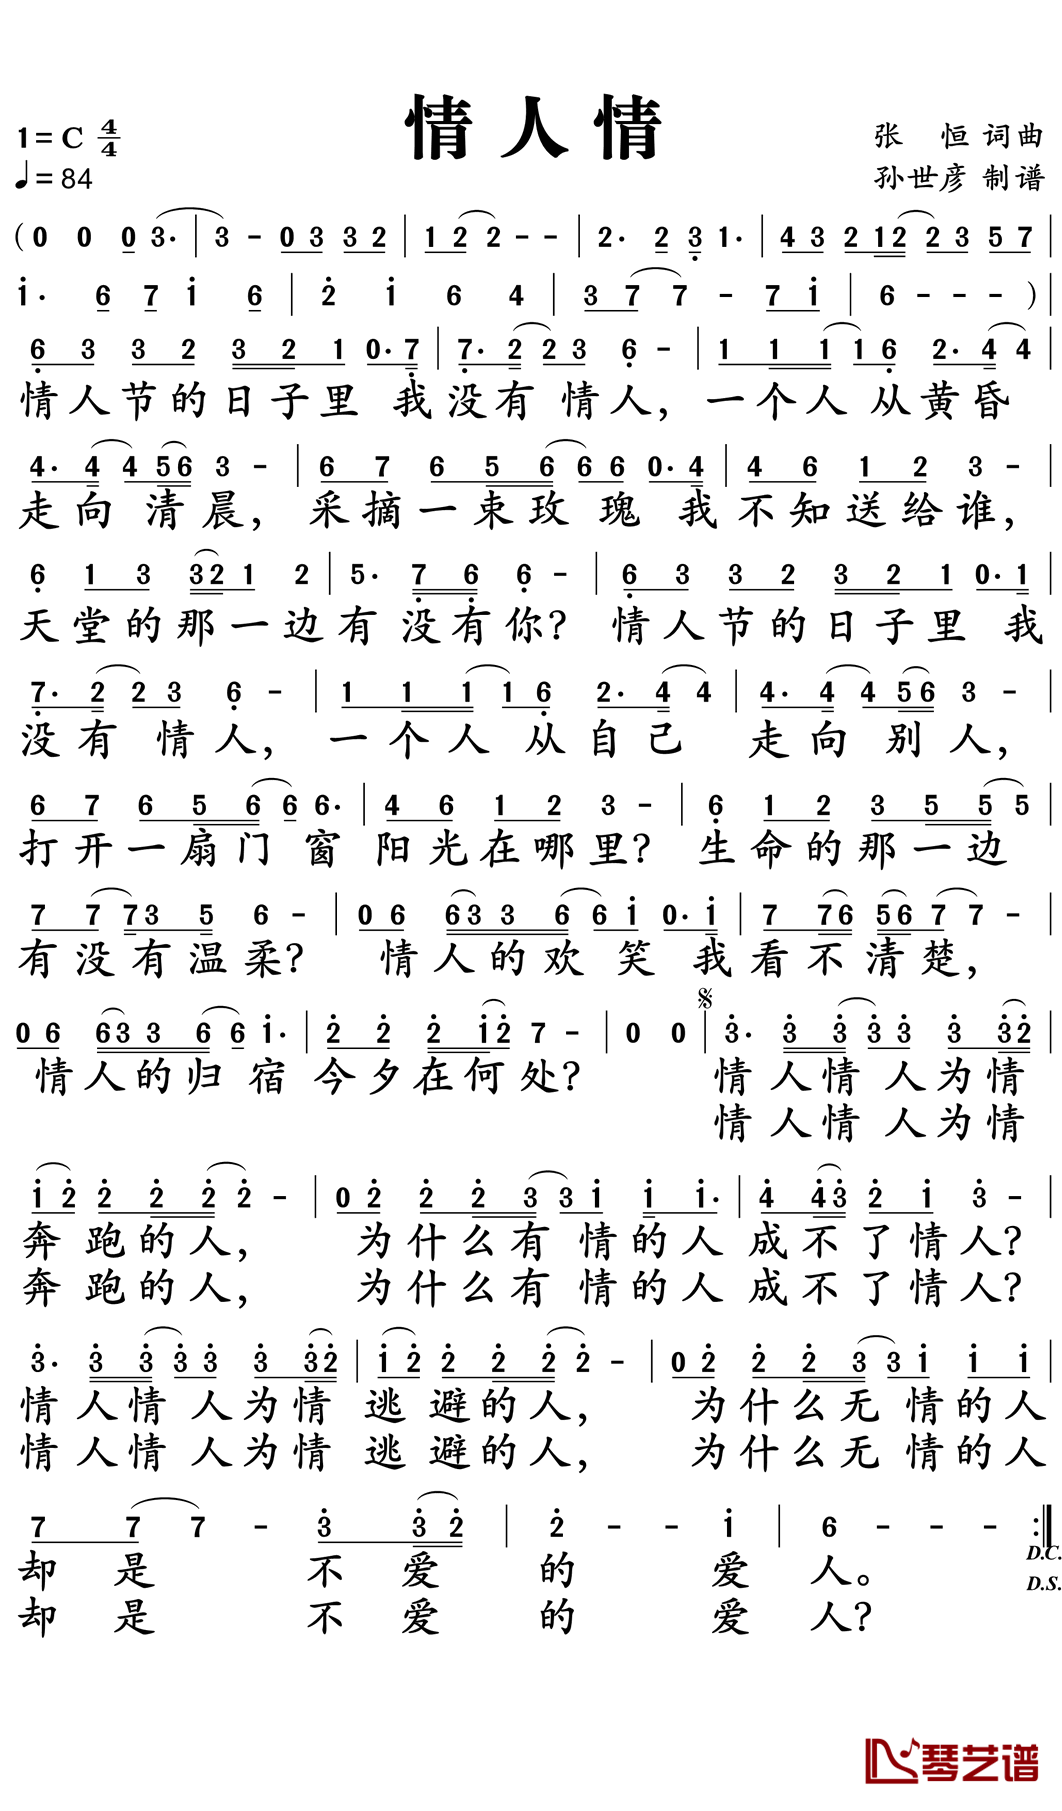 情人情
1=C 4/4
♩=84
张 恒 词曲
孙世彦 制谱
(0 0 0 3· | 3 - 0 3 3 2 | 1 2 2 - - | 2· 2 3 1· | 4 3 2 1 2 2 3 5 7 |
1· 6 7 1 6 | 2 1 6 4 | 3 7 7 - 7 1 | 6 - - - ) |
6 3 3 2 3 2 1 0· 7 | 7· 2 2 3 6 - | 1 1 1 1 6 2· 4 4 |
情人节的日子里 我没有 情人, 一个人 从黄昏
4· 4 4 5 6 3 - | 6 7 6 5 6 6 6 0· 4 | 4 6 1 2 3 - |
走向 清晨, 采摘一束玫 瑰 我不知送给谁,
6 1 3 3 2 1 2 | 5· 7 6 6 - | 6 3 3 2 3 2 1 0· 1 |
天堂的那一边有 没有你? 情人节的日子里 我
7· 2 2 3 6 - | 1 1 1 1 6 2· 4 4 | 4· 4 4 5 6 3 - |
没有 情人, 一个人 从自己 走向 别人,
6 7 6 5 6 6 6· | 4 6 1 2 3 - | 6 1 2 3 5 5 5 |
打开一扇门 窗 阳光在哪里? 生命的那一边
7 7 7 3 5 6 - | 0 6 6 3 3 6 6 1 0· 1 | 7 7 6 5 6 7 7 - |
有没有温柔? 情人的欢 笑 我看不清楚,
0 6 6 3 3 6 6 1· | 2 2 2 1 2 7 - | 0 0 | 𝄋 3· 3 3 3 3 3 3 2 |
情人的归 宿 今夕在何处? 情 人情 人为情
情 人情 人为情
1 2 2 2 2 2 - | 0 2 2 2 3 3 1 1 1· | 4 4 3 2 1 3 - |
奔 跑的人, 为什么有 情的人 成不了情人?
奔 跑的人, 为什么有 情的人 成不了情人?
3· 3 3 3 3 3 3 2 | 1 2 2 2 2 2 - | 0 2 2 2 3 3 1 1 1 |
情 人情 人为情 逃 避的人, 为什么无 情的人
情 人情 人为情 逃 避的人, 为什么无 情的人
7 7 7 - 3 3 2 | 2 - - 1 | 6 - - - :‖
D.C.
却 是 不 爱 的 爱 人。
D.S.
却 是 不 爱 的 爱 人?
琴艺谱